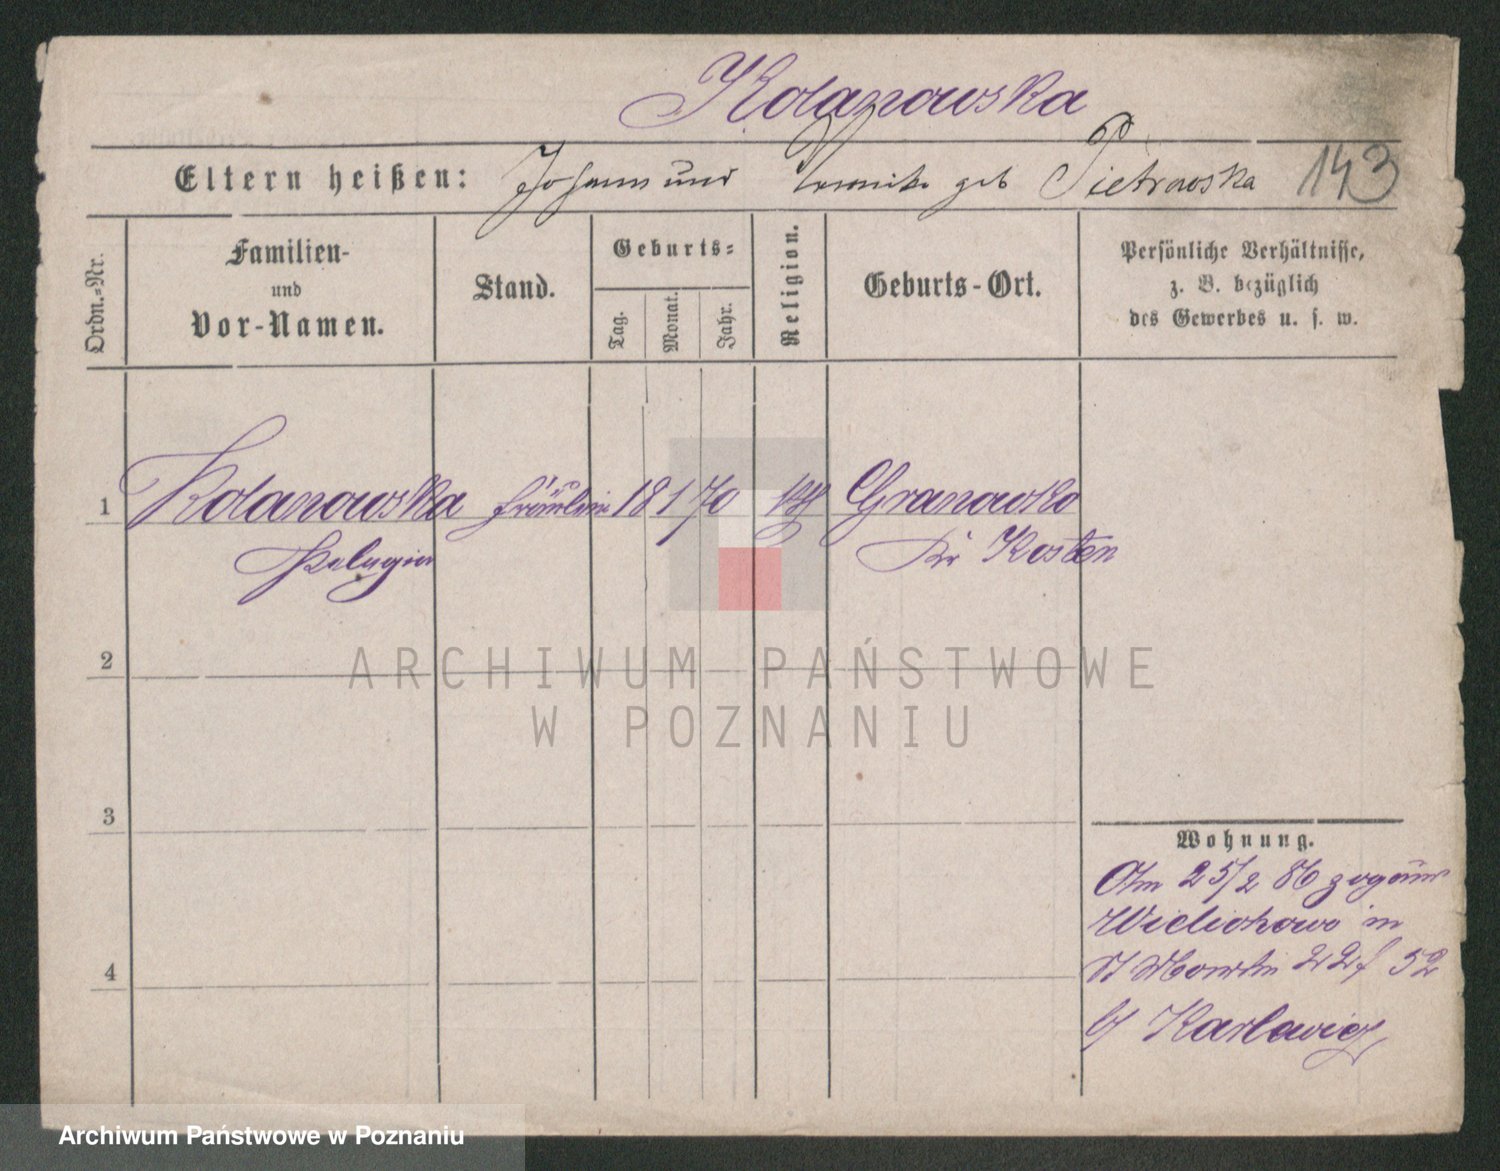 Kolanowska
Eltern heißen: Johann und Veronika geb Pietrowska 143
Ordn.-Nr.
Familien-
und
Vor-Namen.
Stand.
Geburts-
Tag.
Monat.
Jahr.
Religion.
Geburts-Ort.
Persönliche Verhältnisse,
z. B. bezüglich
des Gewerbes u. s. w.
1 Kolanowska Fräulein 18 1 70 kth Granowko
Pelagia Kr Kosten
2
3
4
Wohnung.
Am 25/2 86 zog aus
Wielichowo in
St Martin 22f 52
b/ Karlowicz
ARCHIWUM PAŃSTWOWE
W POZNANIU
Archiwum Państwowe w Poznaniu